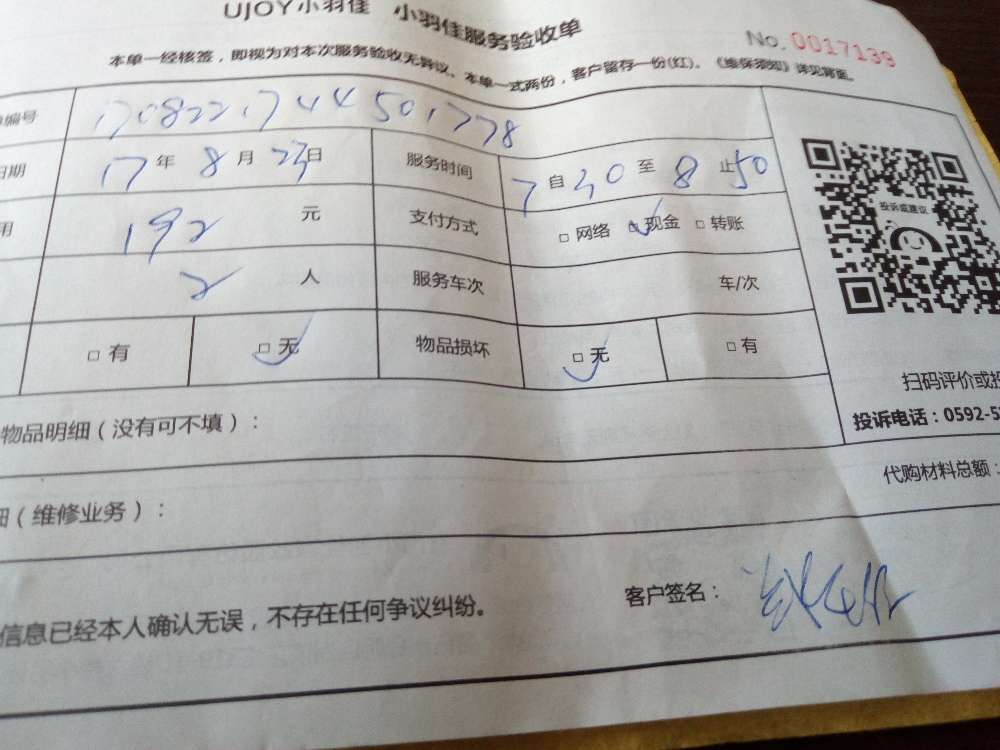 UJOY小羽佳 小羽佳服务验收单
No. 0017139
本单一经核签，即视为对本次服务验收无异议。本单一式两份，客户留存一份(红)。《维保须知》详见背面。
编号 1708221744501778
日期 17年8月23日 服务时间 7自30至8止50
用 192元 支付方式 □ 网络 □ 现金 □ 转账
2人 服务车次 车/次
□ 有 □ 无 物品损坏 □ 无 □ 有
投诉或建议
扫码评价或投
投诉电话：0592-5
物品明细（没有可不填）：
代购材料总额：
细（维修业务）：
信息已经本人确认无误，不存在任何争议纠纷。 客户签名：